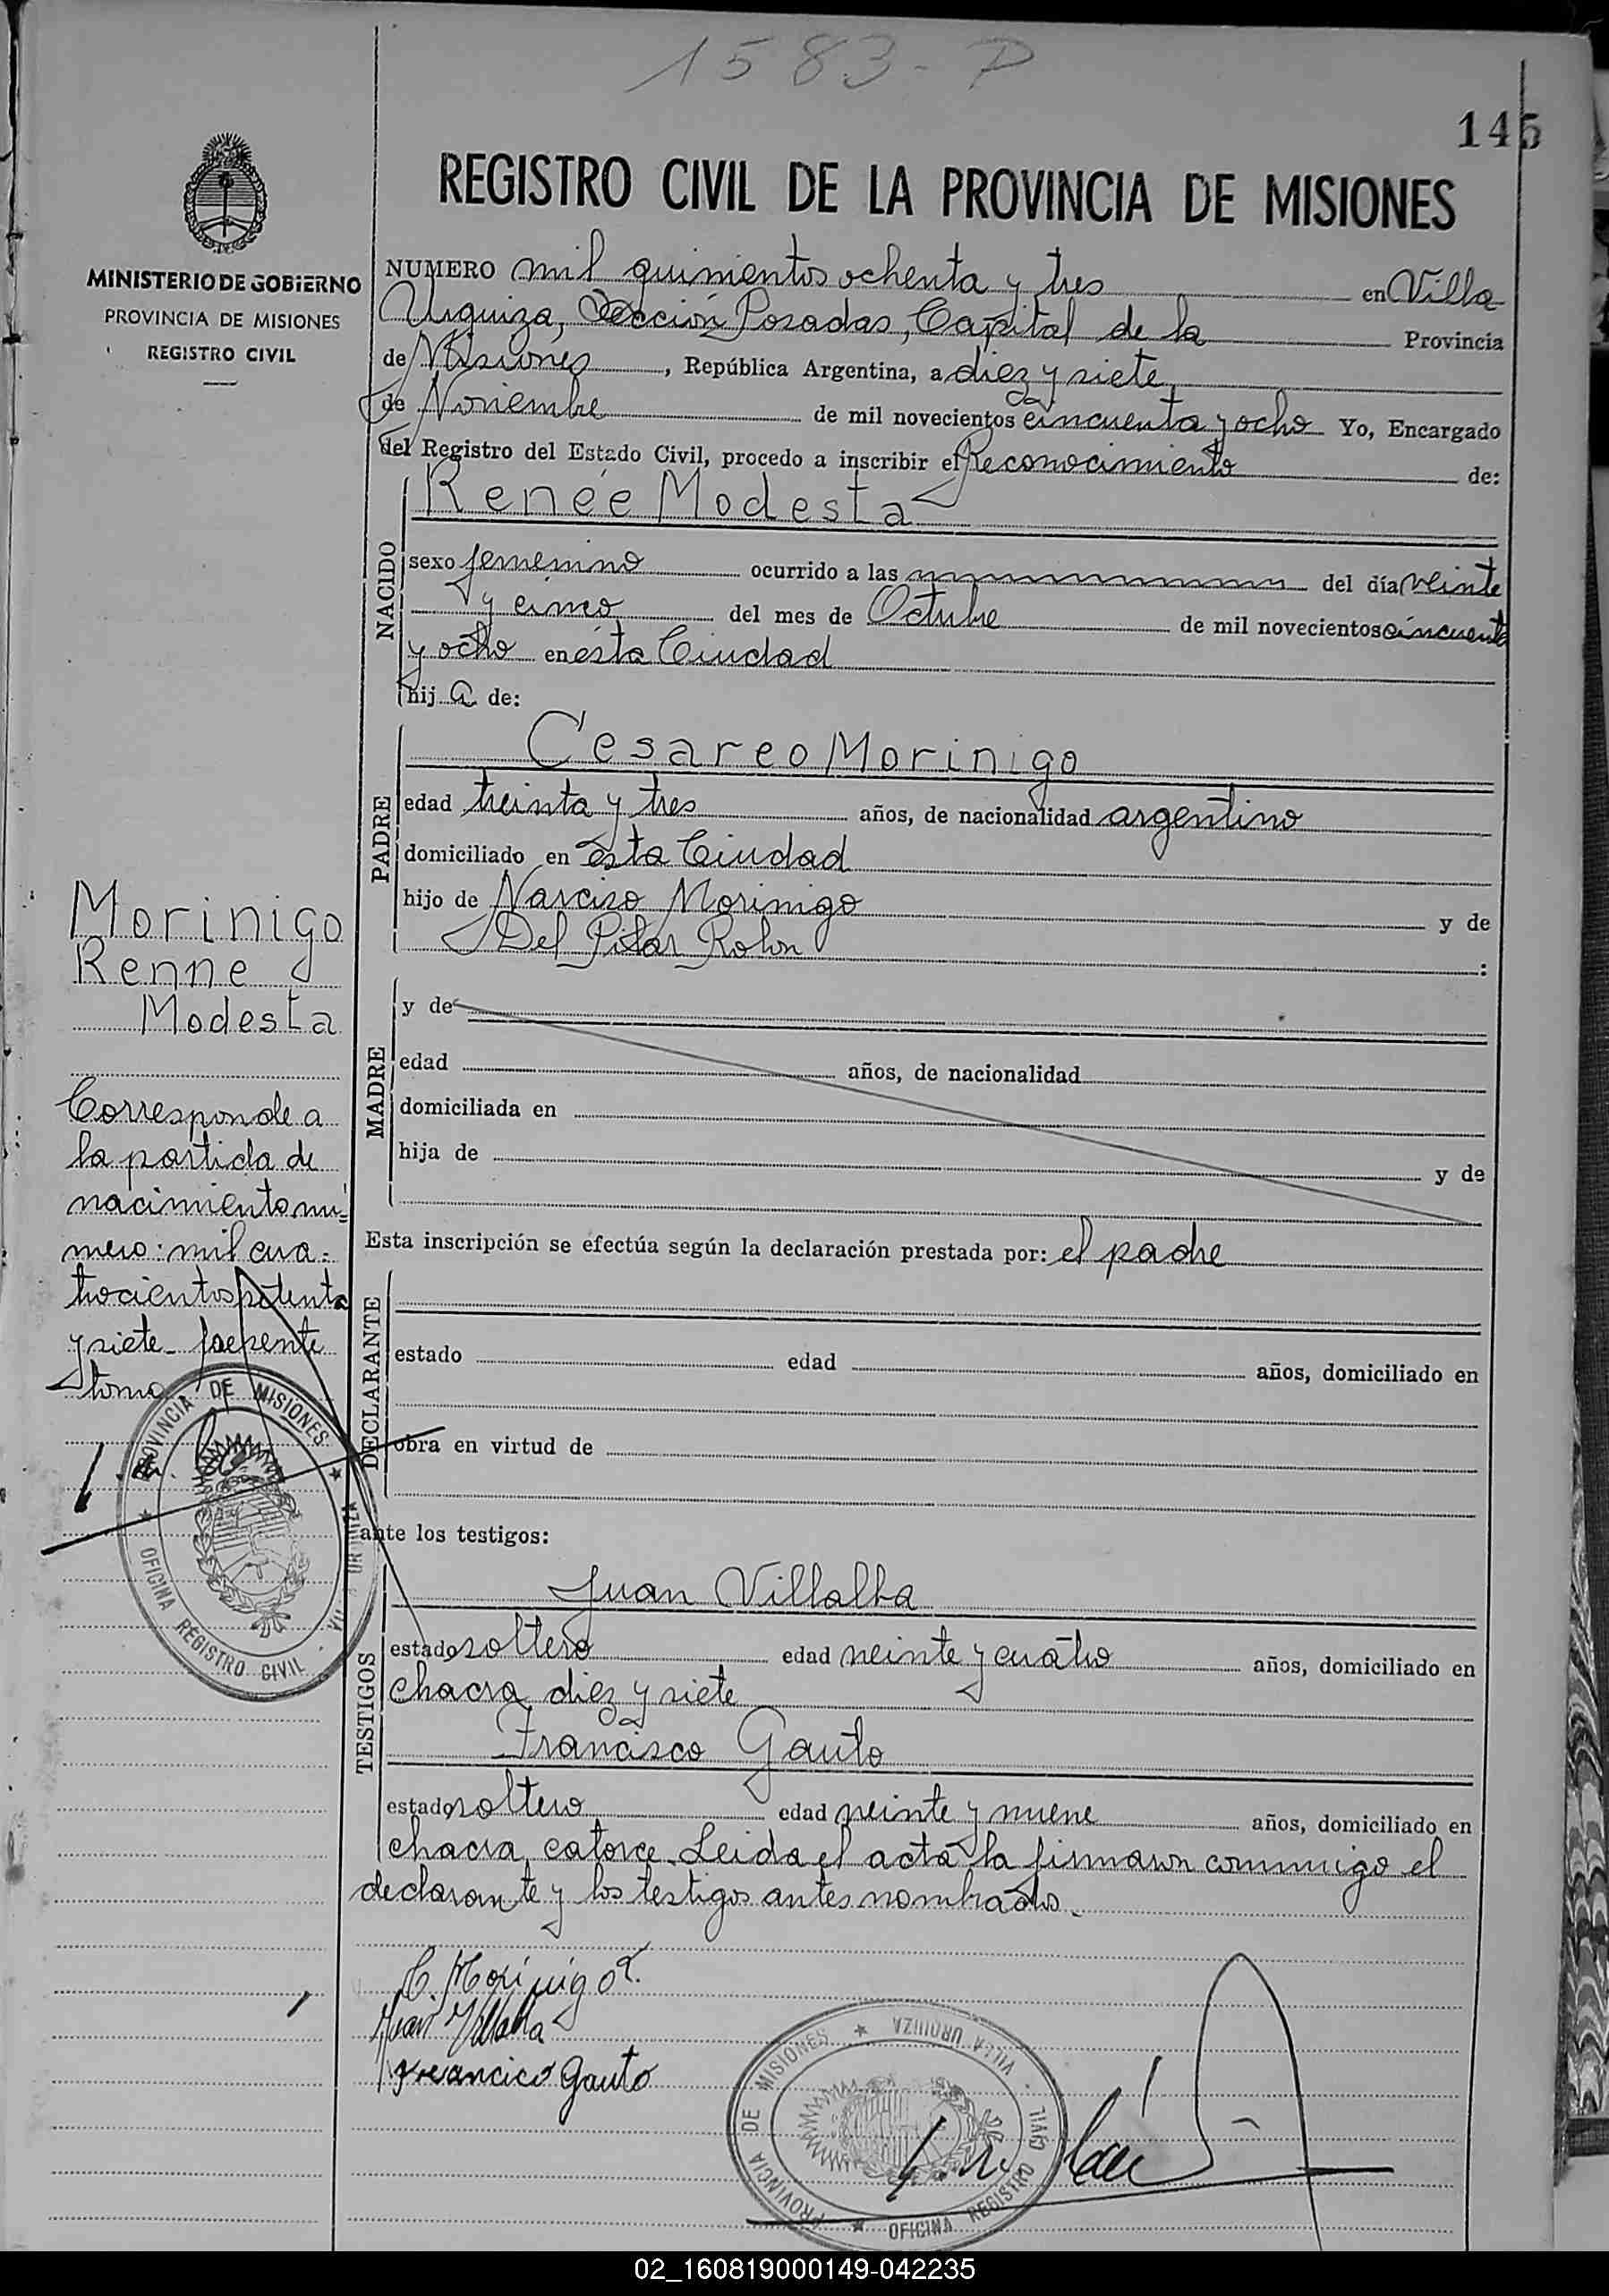 1583-P
145
REGISTRO CIVIL DE LA PROVINCIA DE MISIONES
MINISTERIO DE GOBIERNO
PROVINCIA DE MISIONES
REGISTRO CIVIL
NUMERO mil quinientos ochenta y tres en Villa
Urquiza, Sección Posadas, Capital de la Provincia
de Misiones, República Argentina, a diez y siete
de Noviembre de mil novecientos cincuenta y ocho Yo, Encargado
del Registro del Estado Civil, procedo a inscribir el Reconocimiento de:
Renée Modesta
NACIDO
sexo femenino ocurrido a las del día veinte
y cinco del mes de Octubre de mil novecientos cincuenta
y ocho en ésta Ciudad
hija de:
PADRE
Cesareo Morinigo
edad treinta y tres años, de nacionalidad argentino
domiciliado en ésta Ciudad
hijo de Narciso Morinigo y de
Del Pilar Rolon :
Morinigo
Renne
Modesta
MADRE
y de
edad años, de nacionalidad
domiciliada en
hija de y de
Corresponde a
la partida de
nacimiento nú-
mero: mil cua-
trocientos setenta
y siete
tomo
Esta inscripción se efectúa según la declaración prestada por: el padre
DECLARANTE
estado edad años, domiciliado en
obra en virtud de
PROVINCIA DE MISIONES
OFICINA REGISTRO CIVIL
ante los testigos:
TESTIGOS
Juan Villalba
estado soltero edad veinte y cuatro años, domiciliado en
chacra diez y siete
Francisco Gauto
estado soltero edad veinte y nueve años, domiciliado en
chacra catorce. Leida el acta la firmaron conmigo el
declarante y los testigos antes nombrados.
C. Morinigo R.
Juan Villalba
Francico Gauto
PROVINCIA DE MISIONES
VILLA URQUIZA
OFICINA REGISTRO CIVIL
02_160819000149-042235